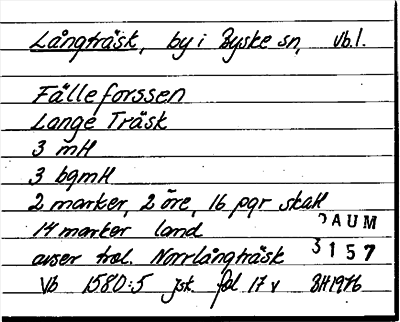 Långträsk, by i Byske sn, Vb.l.
Fälleforssen
Lange Träsk
3 mH
3 bgmH
2 marker, 2 öre, 16 pgr skatt
14 marker land
DAUM
avser trol. Norrlångträsk
3157
Vb 1580:5 jsk fol 17 v BH1976